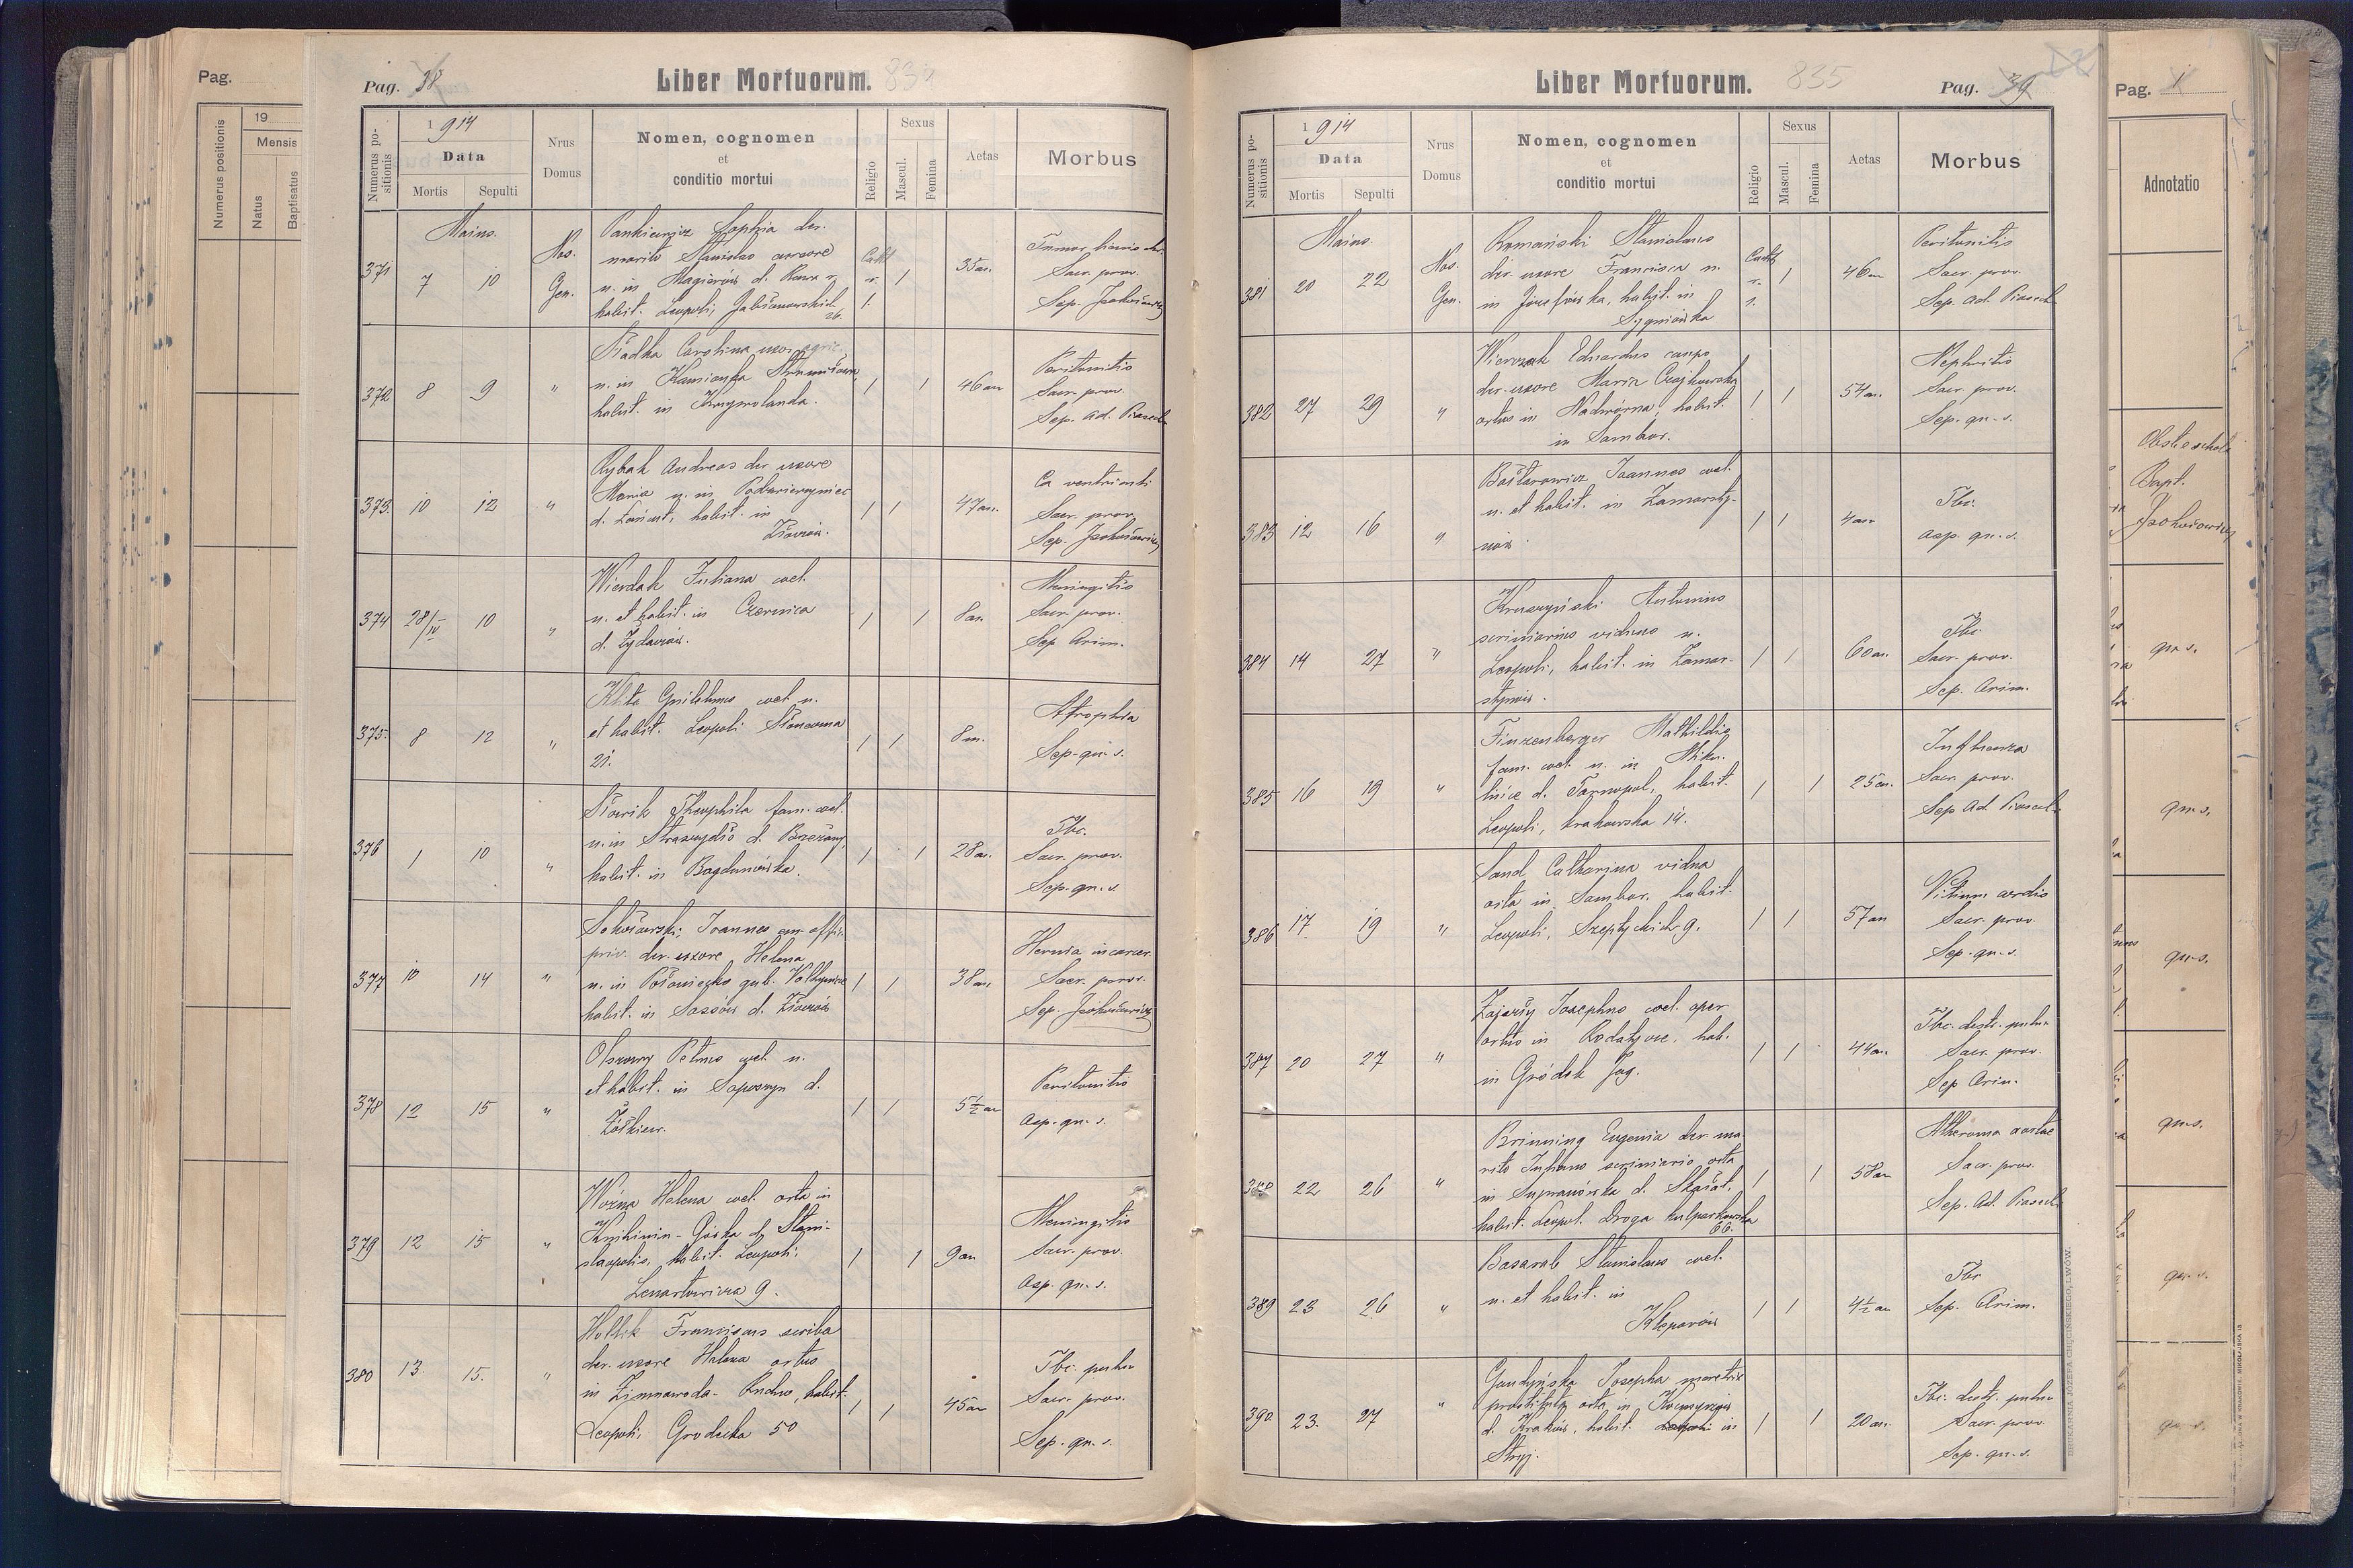 Pag.
19
Mensis
Numerus positionis
Natus
Baptisatus
Pag. 38
Liber Mortuorum.
Numerus positionis
1914
Data
Mortis
Sepulti
Nrus Domus
Nomen, cognomen
et
conditio mortui
Religio
Sexus
Mascul.
Femina
Aetas
Morbus
Maius.
371
7
10
Nos.
Gen.
Sophia der.
marito Stanislao
n. in Magierów d. Rawa r.
habit. Leopoli, Jabłonowskich
26.
Cath
r.
l.
1
35 an.
Tumor
Sacr. prov.
Sep.
372
8
9
"
Siadka Carolina uxor agric.
n. in Kamionka Strumiłowa,
habit. in Krzywolanka.
1
1
46 an
Peritonitis
Sacr. prov.
Sep. ad. Piasech
373.
10
12
"
Rybak Andreas der. uxore
Maria n. in
d. Łańcut, habit. in
Złoczów.
1
1
47 an.
Ca ventriculi
Sacr. prov.
Sep.
374
28/IV
10
"
Wierdak Juliana coel.
n. et habit. in Czernica
d. Żydaczów.
1
1
8 an.
Meningitis
Sacr. prov.
Sep Arim.
375.
8
12
"
Klita Guilelmus coel. n.
et habit. Leopoli Słoneczna
21.
1
1
8 m.
Atrophia
Sep. qu. s.
376
1
10
"
Theophila fam. coel.
n. in d. Brzeżany,
habit. in Bogdanówka.
1
1
28 an.
Tbc.
Sacr. prov.
Sep. qu. s
377
10
14
"
Sokołowski Joannes em. offic.
priv. der. uxore Helena
n. in gub.
habit. in Sassów d. Złoczów
1
1
38 an.
Hernia incarcer.
Sacr. prov.
Sep.
378
12
15
"
Petrus coel. n.
et habit. in Soposzyn d.
Żółkiew.
1
1
5½ an
Peritonitis
Asp. qu. s.
379
12
15
"
Woźna Helena coel. orta in
Knihinin-Górka d. Stani-
slaopolis, habit. Leopoli,
Lenartowicza 9.
1
1
9 an
Meningitis
Sacr. prov.
Asp. qu. s.
380
13.
15.
"
Hollik Franciscus scriba
der. uxore Helena ortus
in Zimnawoda-Rudno, habit.
Leopoli, Grodecka 50
1
1
45 an
Tbc. pulm
Sacr. prov.
Sep. qu. s.
Liber Mortuorum.
835
Pag. 39
Numerus positionis
1914
Data
Mortis
Sepulti
Nrus Domus
Nomen, cognomen
et
conditio mortui
Religio
Sexus
Mascul.
Femina
Aetas
Morbus
Maius.
381
20
22
Nos.
Gen.
Romański Stanislaus
der. uxore Francisca n.
in Józefówka, habit. in
Sygniówka
Cath
r.
l.
1
46 an
Peritonitis
Sacr. prov.
Sep. ad Piasech
382
27
29
"
Wierzak Eduardus caupo
der. uxore Maria Czajkowska
ortus in Nadwórna, habit.
in Sambor.
1
1
54 an.
Nephritis
Sacr. prov.
Sep. qu. s.
383
12
16
"
Joannes coel.
n. et habit. in Zamarsty-
nów.
1
1
4 an
Tbc.
Asp. qu. s.
384
14
27
"
Kruszyński Antonius
scriniarius viduus n.
Leopoli, habit. in Zamar-
stynów.
1
1
60 an.
Tbc.
Sacr. prov.
Sep. Arim.
385
16
19
"
Finzenberger Mathildis
fam. coel. n. in Miku-
lińce d. Tarnopol, habit.
Leopoli, Krakowska 14.
1
1
25 an.
Influenza
Sacr. prov.
Sep Ad Piasech
386
17
19
"
Sand Catharina vidua
orta in Sambor, habit.
Leopoli, Szeptyckich 9.
1
1
57 an
Vitium cordis
Sacr. prov.
Sep. qu. s.
387
20
27
"
Josephus coel. oper.
ortus in Rodatycze, hab.
in Gródek Jag.
1
1
44 an.
Tbc. destr. pulm
Sacr. prov.
Sep Arim.
388
22
26
"
Brinning Eugenia der. ma-
rito Juliano scriniario orta
in d. Skałat,
habit. Leopol. Droga Kulparkowska
66.
1
1
58 an
Atheroma aortae
Sacr. prov.
Sep. Ad. Piasech
389
23
26
"
Basarab Stanislaus coel.
n. et habit. in
Kleparów
1
1
4½ an
Tbc
Sep. Arim.
390.
23.
27
"
Josepha meretrix
orta in
d. Kraków, habit. in
Stryj.
1
1
20 an.
Tbc. destr. pulm
Sacr. prov.
Sep. qu. s.
DRUKARNIA JÓZEFA CHĘCIŃSKIEGO, LWÓW.
Pag. 1
Adnotatio
Bapt.
qu. s.
qu. s.
qu. s.
qu. s.
qu. s.
qu. s.